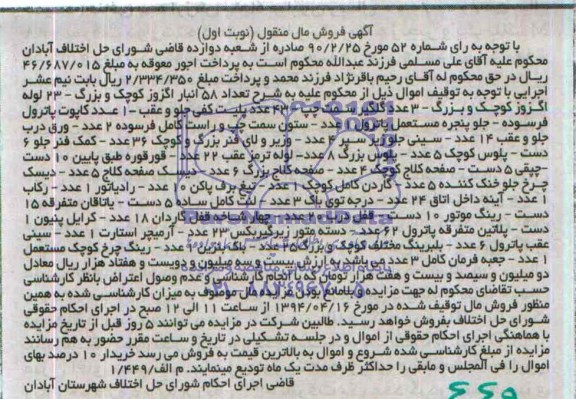 آگهی فروش مال منقول (نوبت اول)
با توجه به رای شماره ۵۲ مورخ ۹۰/۲/۲۵ صادره از شعبه دوازده قاضی شورای حل اختلاف آبادان
محکوم علیه آقای علی مسلمی فرزند عبدالله محکوم است به پرداخت اجور معوقه به مبلغ ۴۶/۶۸۷/۰۱۵
ریال در حق محکوم له آقای رحیم باقرنژاد فرزند محمد و پرداخت مبلغ ۲/۳۳۴/۳۵۰ ریال بابت نیم عشر
اجرایی با توجه به توقیف اموال ذیل از محکوم علیه به شرح تعداد ۵۸ انبار اگزوز کوچک و بزرگ – ۲۳ لوله
اگزوز کوچک و بزرگ – ۳ عدد گلگیر سمت چپ – ۴۳ عدد بلیت کفی جلو و عقب – ۱ عدد کاپوت پاترول
فرسوده – جلو پنجره مستعمل پاترول ۱ عدد – ستون سمت چپ و راست کامل فرسوده ۲ عدد – ورق درب
جلو و عقب ۱۴ عدد – سینی جلو زیر سپر ۷ عدد – وزیر و لای فنر بزرگ و کوچک ۳۶ عدد – کمک فنر جلو ۶
دست – پلوس کوچک ۵ عدد – پلوس بزرگ ۸ عدد – لوله ترمز عقب ۲۲ عدد – قورقوره طبق پایین ۱۰ دست
– چپقی ۵ دست – صفحه کلاج کوچک ۴ عدد – صفحه کلاج بزرگ ۶ عدد – دیسک صفحه کلاج ۵ عدد – دیسک
چرخ جلو خنک کننده ۵ عدد – گاردن کامل کوچک ۱ عدد – تیغ برف پاکن ۱۰ عدد – رادیاتور ۱ عدد – رکاب
۱ عدد – آینه داخل اتاق ۲۴ عدد – درجه توی باک ۳ عدد – لنت کامل ساده ۵ دست – یاتاقان متفرقه ۱۵
دست – رینگ موتور ۱۰ دست – قفل درب ۲۰ عدد – چهار شاخه قفل گاردان ۱۸ عدد – کرایل پنیون ۱
دست – پلاتین متفرقه پاترول ۶۲ عدد – دسته متور زیرگیربکس ۲۳ عدد – آرمیچر استارت ۱ عدد – سینی
عقب پاترول ۶ عدد – بلبرینگ مختلف کوچک و بزرگ ۲۵ عدد – باک بنزین ۱ عدد – رینگ چرخ کوچک مستعمل
۱ عدد – جعبه فرمان کامل ۳ عدد می باشد به ارزش بیست و سه میلیون و دویست و هفتاد هزار ریال معادل
دو میلیون و سیصد و بیست و هفت هزار تومان که با انجام کارشناسی و عدم وصول اعتراض بانظر کارشناسی
حسب تقاضای محکوم له جهت مزایده و بلامانع بودن مزایده مال موصوف به میزان کارشناسی شده به همین
منظور فروش مال توقیف شده در مورخ ۱۳۹۴/۰۴/۱۶ از ساعت ۱۱ الی ۱۲ صبح در اجرای احکام حقوقی
شورای حل اختلاف بفروش خواهد رسید. طالبین شرکت در مزایده می توانند ۵ روز قبل از تاریخ مزایده
با هماهنگی اجرای احکام حقوقی از اموال و در جلسه تشکیلی در تاریخ و ساعت مقرر حضور به هم رسانند
مزایده از مبلغ کارشناسی شده شروع و اموال به بالاترین قیمت به فروش می رسد خریدار ۱۰ درصد بهای
اموال را فی المجلس و مابقی را حداکثر ظرف مدت یک ماه تودیع مینمایند. م الف/۱/۴۴۹
قاضی اجرای احکام شورای حل اختلاف شهرستان آبادان
۶۶۵